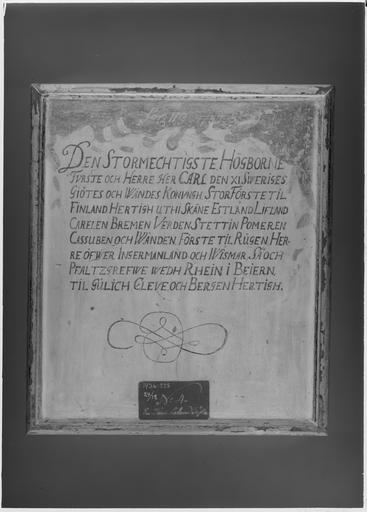 DEN STORMECHTIGSTE HÖGBORNE
FURSTE OCH HERRE HER CARL DEN XI SWERIGES
GIÖTES OCH WÄNDES KONUNGH STORFÖRSTE TIL
FINLAND HERTIGH UTHI SKÅNE ESTLAND LIFLAND
CARELEN BREMEN VERDEN STETTIN POMEREN
CASSUBEN OCH WÄNDEN FÖRSTE TIL RÜGEN HER-
RE ÖFWER INGERMANLAND OCH WISMAR SÅ OCH
PFALTZGREFWE WEDH RHEIN I BEIERN
TIL GÜLICH CLEVE OCH BERGEN HERTIGH.
No 4.